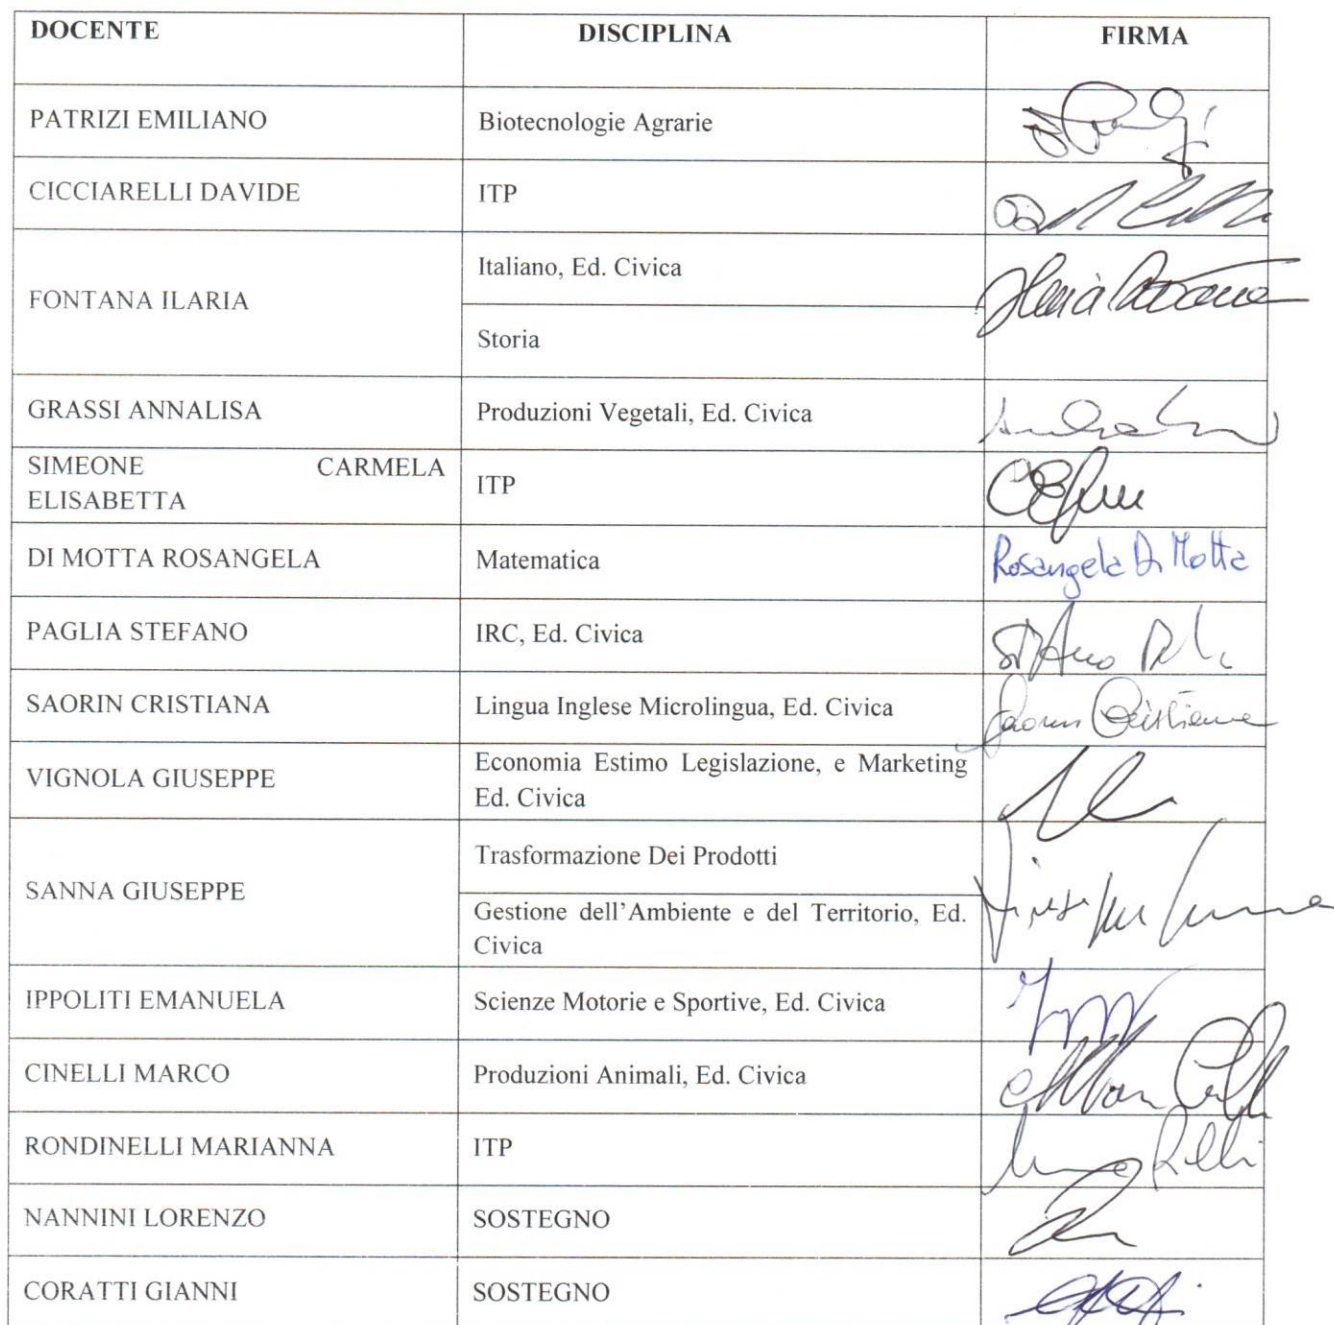 DOCENTE DISCIPLINA FIRMA
PATRIZI EMILIANO Biotecnologie Agrarie
CICCIARELLI DAVIDE ITP
FONTANA ILARIA Italiano, Ed. Civica
Storia
GRASSI ANNALISA Produzioni Vegetali, Ed. Civica
SIMEONE CARMELA
ELISABETTA ITP
DI MOTTA ROSANGELA Matematica Rosangela Di Motta
PAGLIA STEFANO IRC, Ed. Civica Stefano
SAORIN CRISTIANA Lingua Inglese Microlingua, Ed. Civica Saorin Cristiana
VIGNOLA GIUSEPPE Economia Estimo Legislazione, e Marketing
Ed. Civica
SANNA GIUSEPPE Trasformazione Dei Prodotti
Gestione dell'Ambiente e del Territorio, Ed.
Civica
IPPOLITI EMANUELA Scienze Motorie e Sportive, Ed. Civica
CINELLI MARCO Produzioni Animali, Ed. Civica
RONDINELLI MARIANNA ITP
NANNINI LORENZO SOSTEGNO
CORATTI GIANNI SOSTEGNO